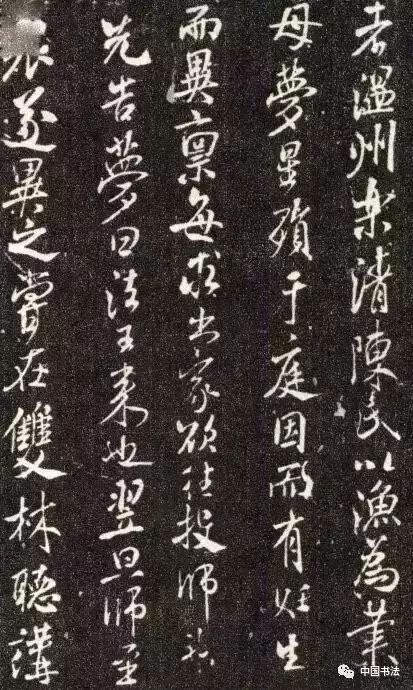 者温州樂清陳氏以漁為業
母夢星殞于庭因而有妊生
而異禀每求出家欲往投師
先告夢曰法王來也翌旦師至
遂異之嘗在雙林聽講
中国书法